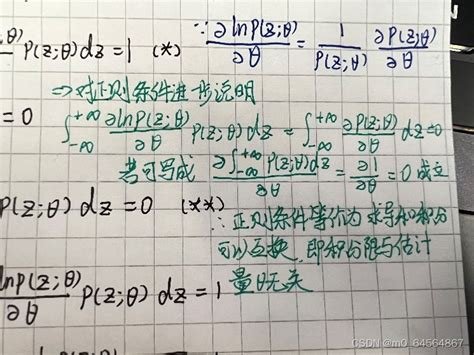 P(z;θ)dz=1 (*)
∵ ∂lnp(z;θ)/∂θ = 1/P(z;θ) ∂P(z;θ)/∂θ
⇒对正则条件进步说明
=0
∫_{-∞}^{+∞} ∂lnp(z;θ)/∂θ P(z;θ)dz = ∫_{-∞}^{+∞} ∂P(z;θ)/∂θ dz=0
若可写成 ∂∫_{-∞}^{+∞} P(z;θ)dz/∂θ = ∂1/∂θ =0 成立
P(z;θ)dz=0 (**)
∴正则条件等价为 求导和积分
可以互换,即积分限与估计
量θ无关
lnp(z;θ)/∂θ P(z;θ)dz=1
CSDN @m0_64564867